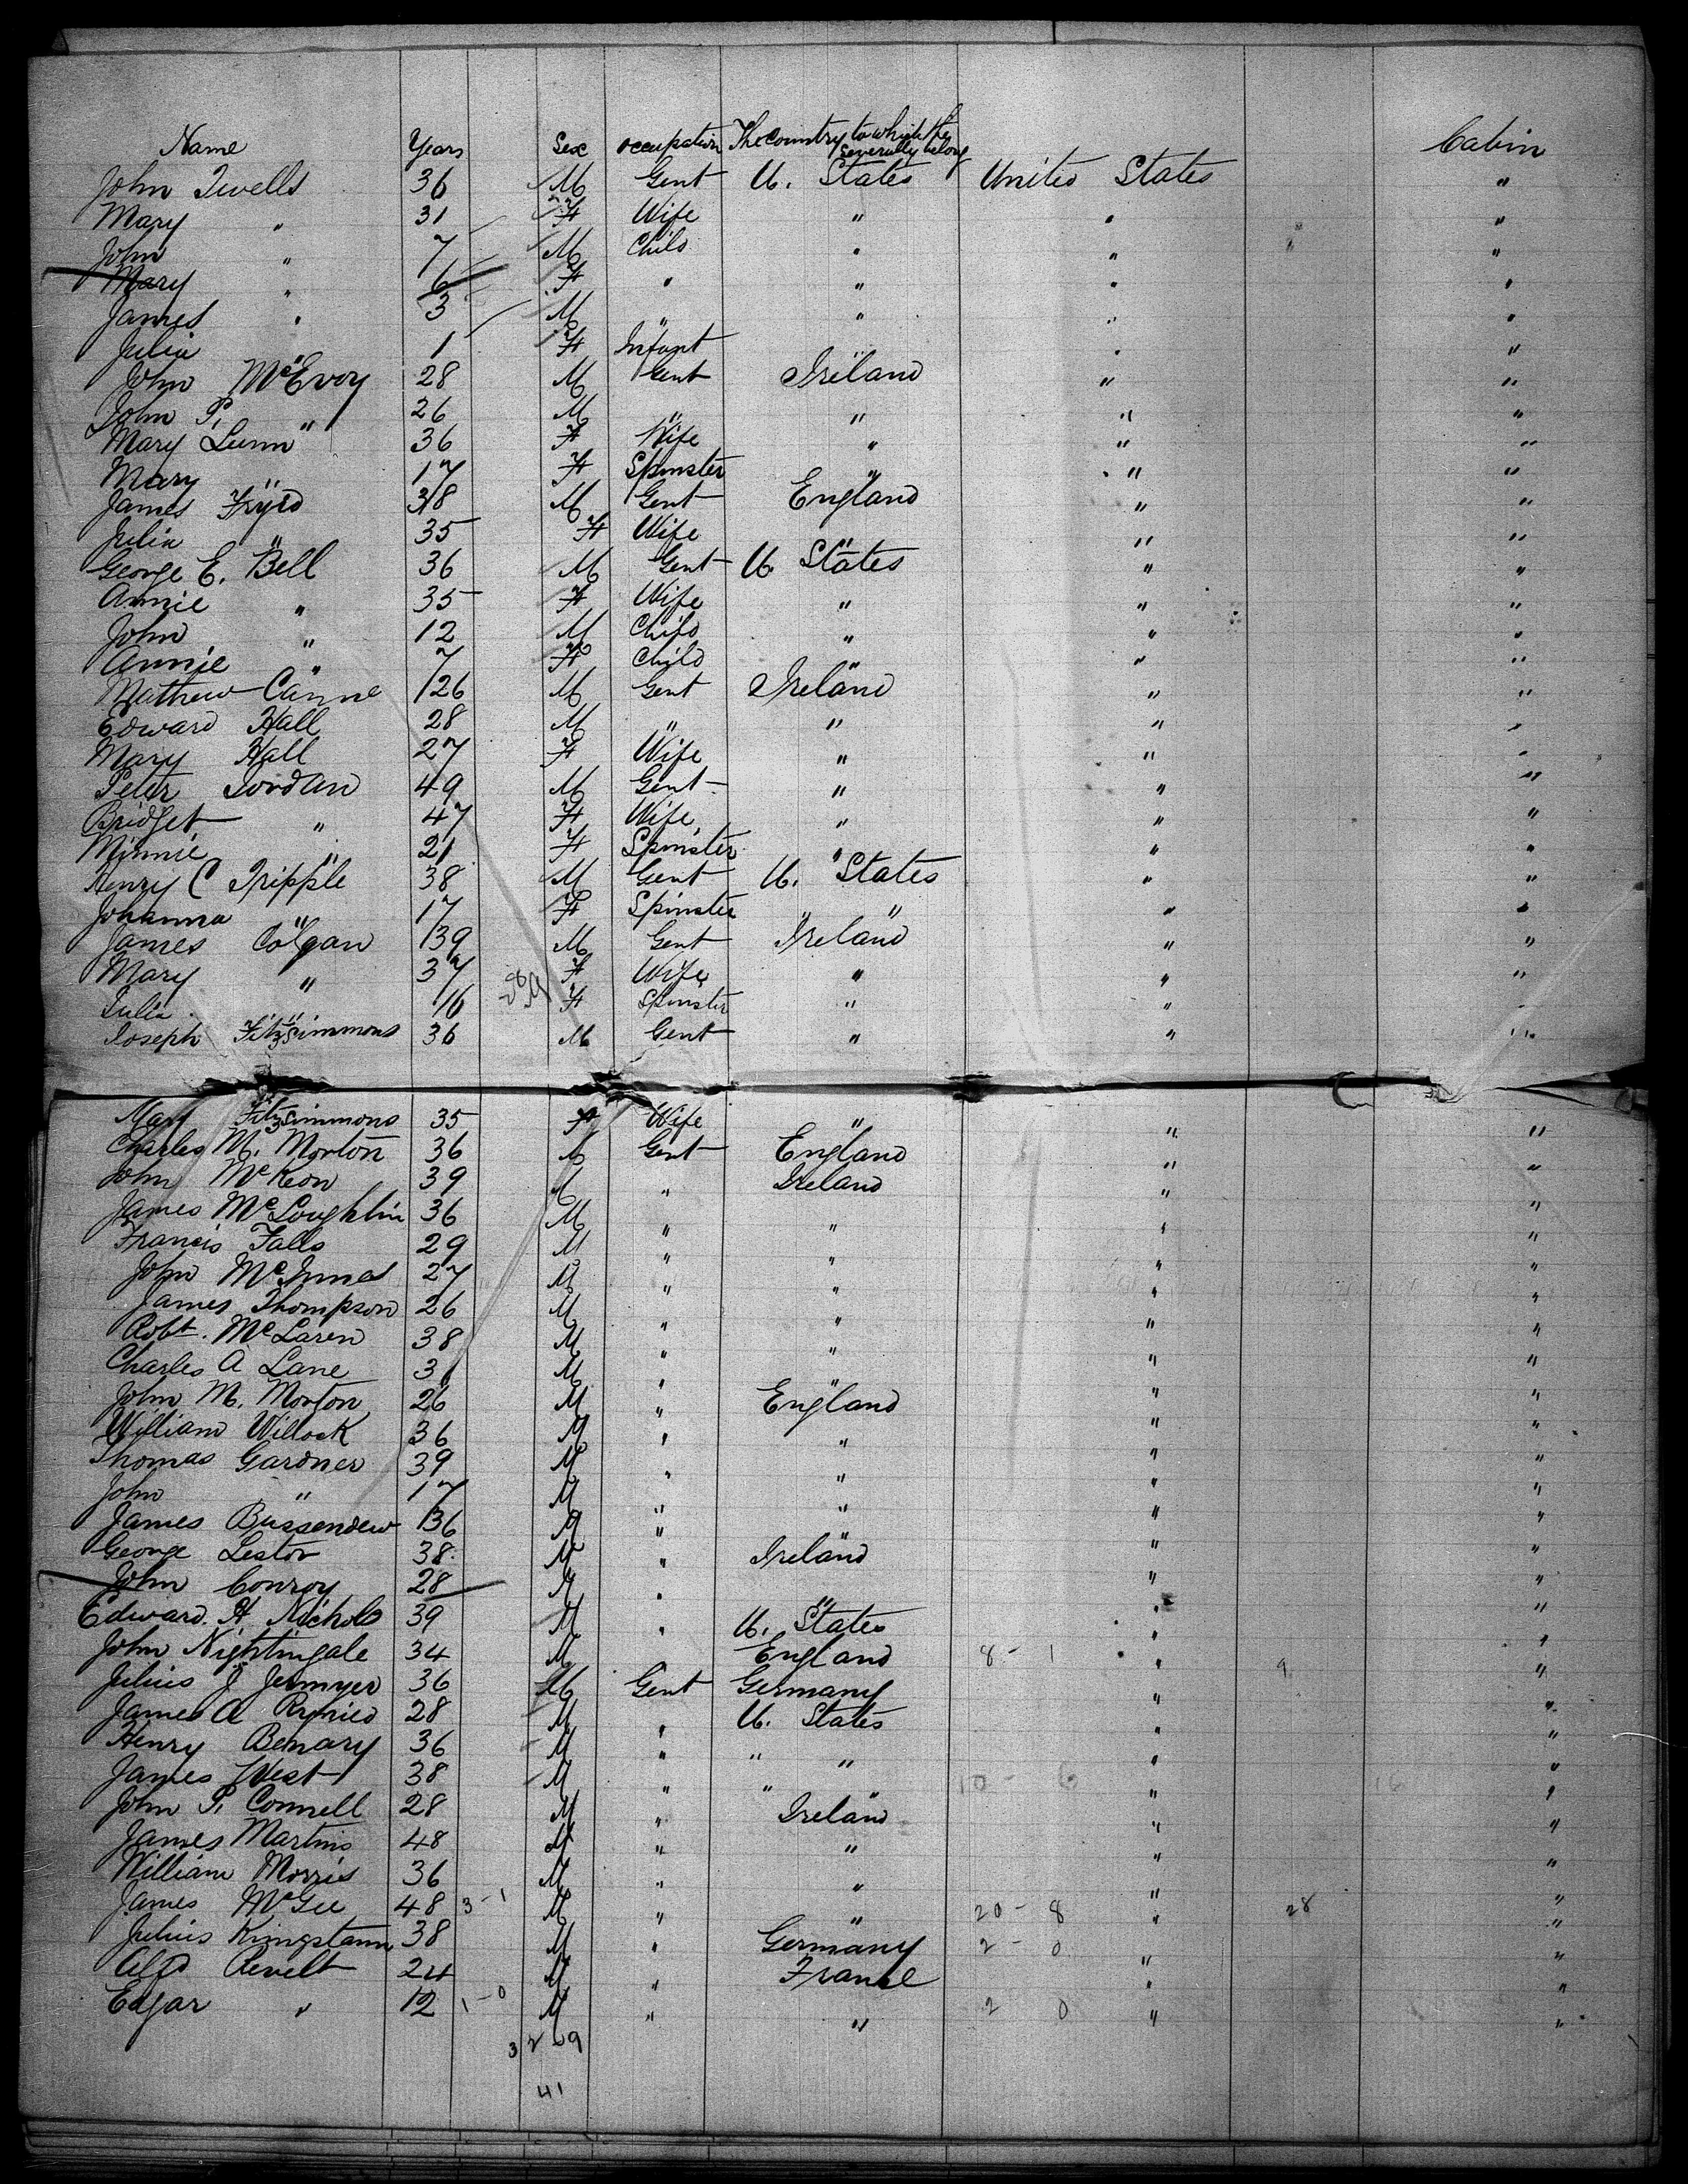 Name Years Sex Occupation The Country to which they severally belong Cabin
John Twells 36 M Gent U. States United States "
Mary " 31 F Wife " " "
John " 7 M Child " " "
Mary " 6 F " " " "
James " 3 M " " " "
Julia 1 F Infant " "
John McEvoy 28 M Gent Ireland " "
John P. " 26 M " " " "
Mary Lunn 36 F Wife " " "
Mary " 17 F Spinster " " "
James 38 M Gent England " "
Julia " 35 F Wife " " "
George E. Bell 36 M Gent U States " "
Annie " 35 F Wife " " "
John " 12 M Child " " "
Annie " 7 F Child " " "
Mathew Canne 26 M Gent Ireland " "
Edward Hall 28 M " " " "
Mary Hall 27 F Wife " " "
Peter Jordan 49 M Gent " " "
Bridget " 47 F Wife " " "
Minnie " 21 F Spinster " " "
Henry C Tripple 38 M Gent U. States " "
Johanna " 17 F Spinster " " " "
James Colgan 39 M Gent Ireland " "
Mary " 37 F Wife " " "
Julia " 16 F Spinster " " "
Joseph Fitzsimmons 36 M Gent " " "
Mary Fitzsimmons 35 F Wife " " "
Charles M. Morton 36 M Gent England " "
John McKeon 39 M " Ireland " "
James McLoughlin 36 M " " " "
Francis Falls 29 M " " " "
John McInnes 27 M " " " "
James Thompson 26 M " " " "
Robt. McLaren 38 M " " " "
Charles A Lane 31 M " " " "
John M. Morton 26 M " England " "
William Willock 36 M " " " "
Thomas Gardner 39 M " " " "
John " 17 M " " " "
James Bussendew 36 M " " " "
George Lestor 38 M " Ireland " "
John Conroy 28 M " " " "
Edward. H Nichols 39 M " U. States " "
John Nightingale 34 M England 8 - 1 " 9 "
Julius J 36 M Gent Germany " "
James A 28 M " U. States " "
Henry Benary 36 M " " " " "
James West 38 M " " " 10 - 6 " 16 "
John P. Connell 28 M " Ireland " "
James Martins 48 M " " " "
William Morris 36 M " " " "
James McGee 48 3 - 1 M " " 20 - 8 " 28 "
Julius Kingstann 38 M " Germany 2 - 0 " "
Alfd Revelt 24 M " France " "
Edgar " 12 1 - 0 M " " 2 0 " "
3 2 - 9
41